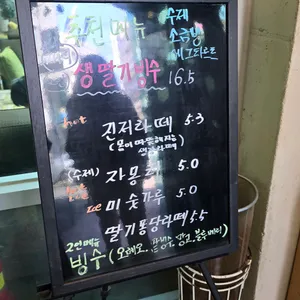 추천메뉴
수제
소금빵
에그타르트
생딸기빙수 16.5
hot 진저라떼 5.3
(몸이 따뜻해지는
생강라떼)
(수제) 자몽티 5.0
Ice 미숫가루 5.0
딸기퐁당라떼 5.5
2인메뉴
빙수(오레오, 팥, 블루베리)